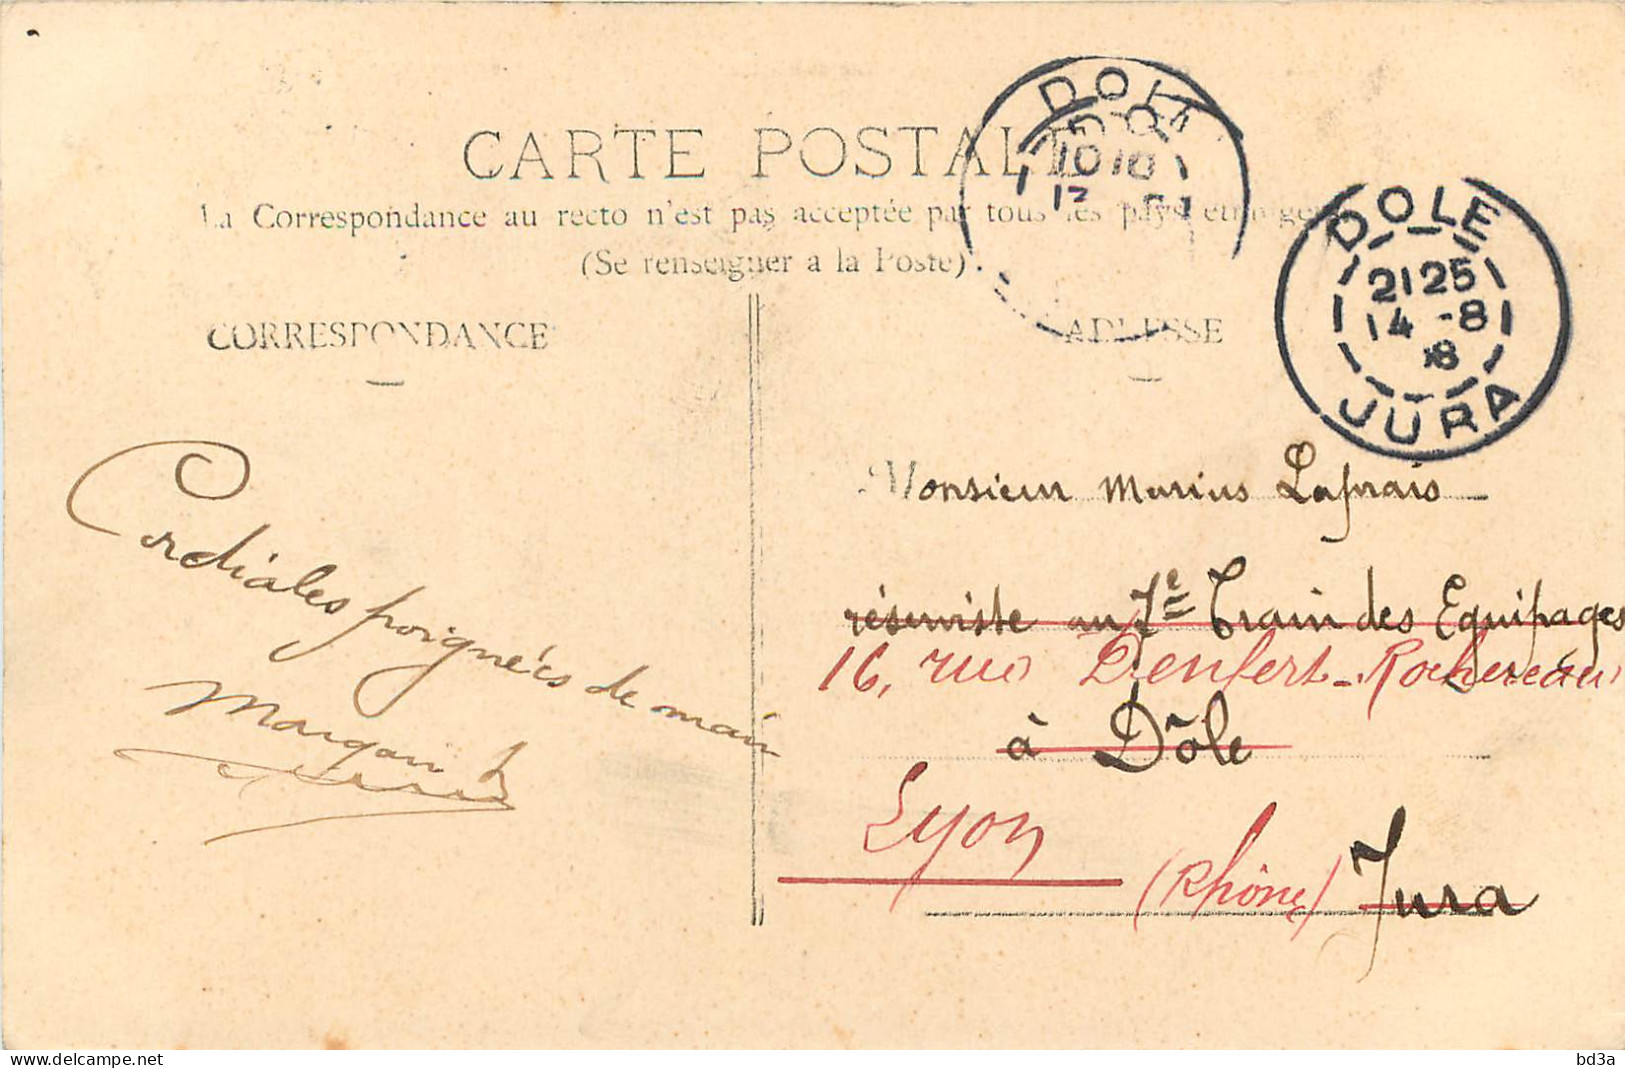 CARTE POSTALE
La Correspondance au recto n'est pas acceptée par tous les pays étrangers
(Se renseigner à la Poste).
CORRESPONDANCE
ADRESSE
DOLE
10 10
DOLE
21 25
14 -8
8
JURA
Cordiales poignées de main
Monsieur Marius Lafrais
réserviste au 7e Train des Equipages
16, rue Denfert-Rochereau
à Dôle
Lyon
(Rhône) Jura
delcampe.net
bd3a